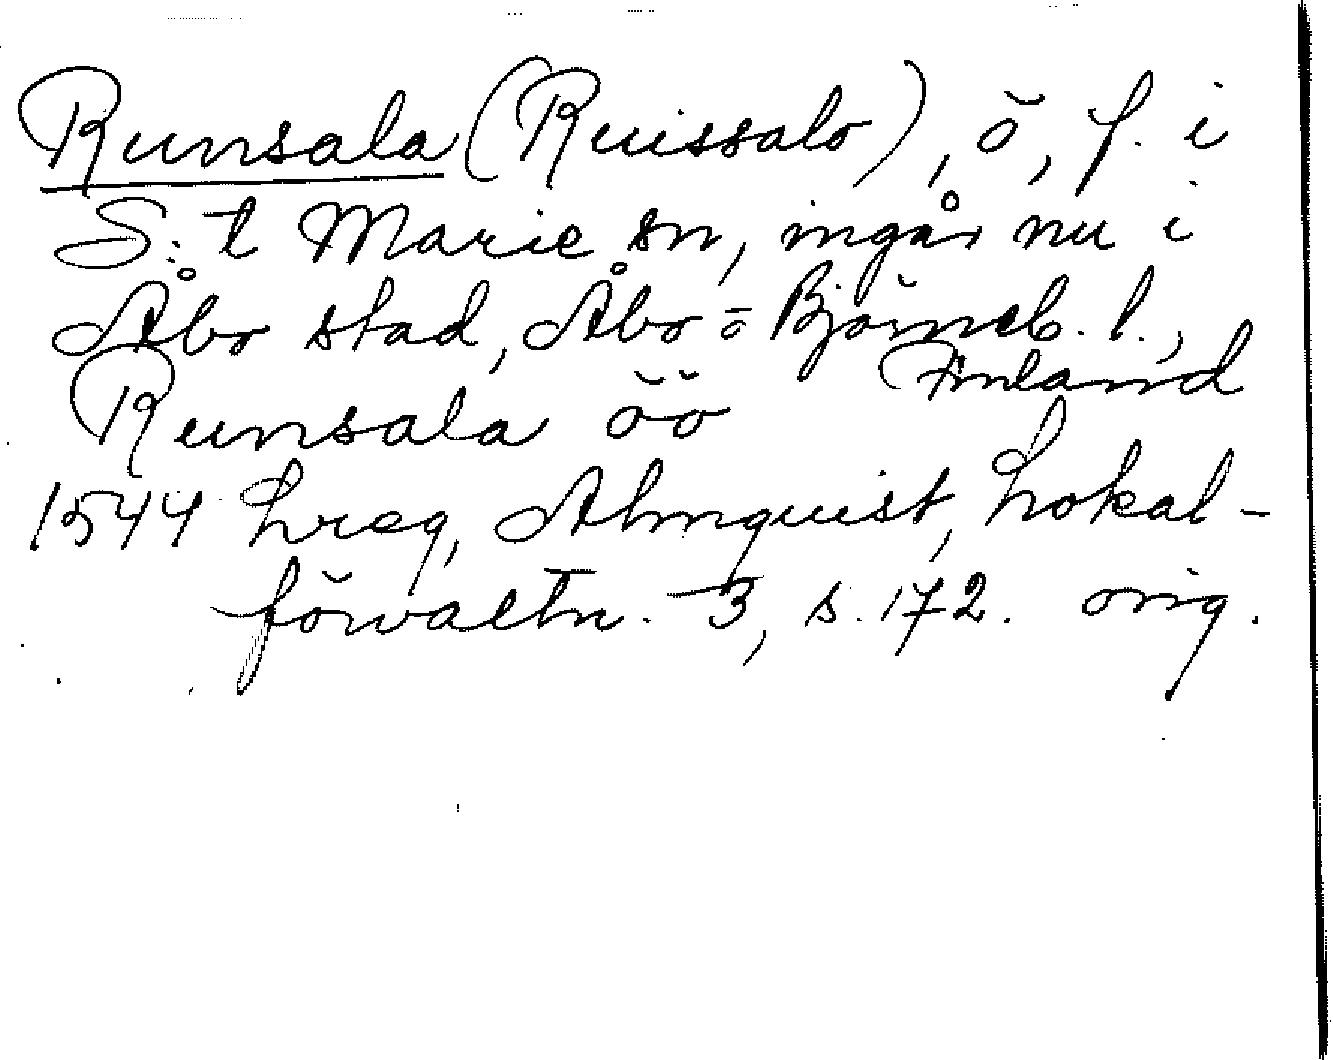 Runsala (Ruissalo), ö, f. i
S:t Marie sn, ingår nu i
Åbo stad, Åbo o Björneb. l.,
Finland
Runsala öö
1544 hreg, Almquist, Lokal-
förvaltn. 3, s. 172. orig.